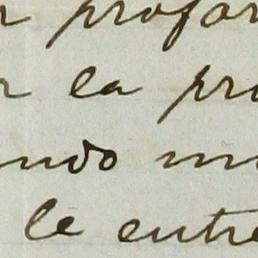 profor
r la pro
ando m
le entre